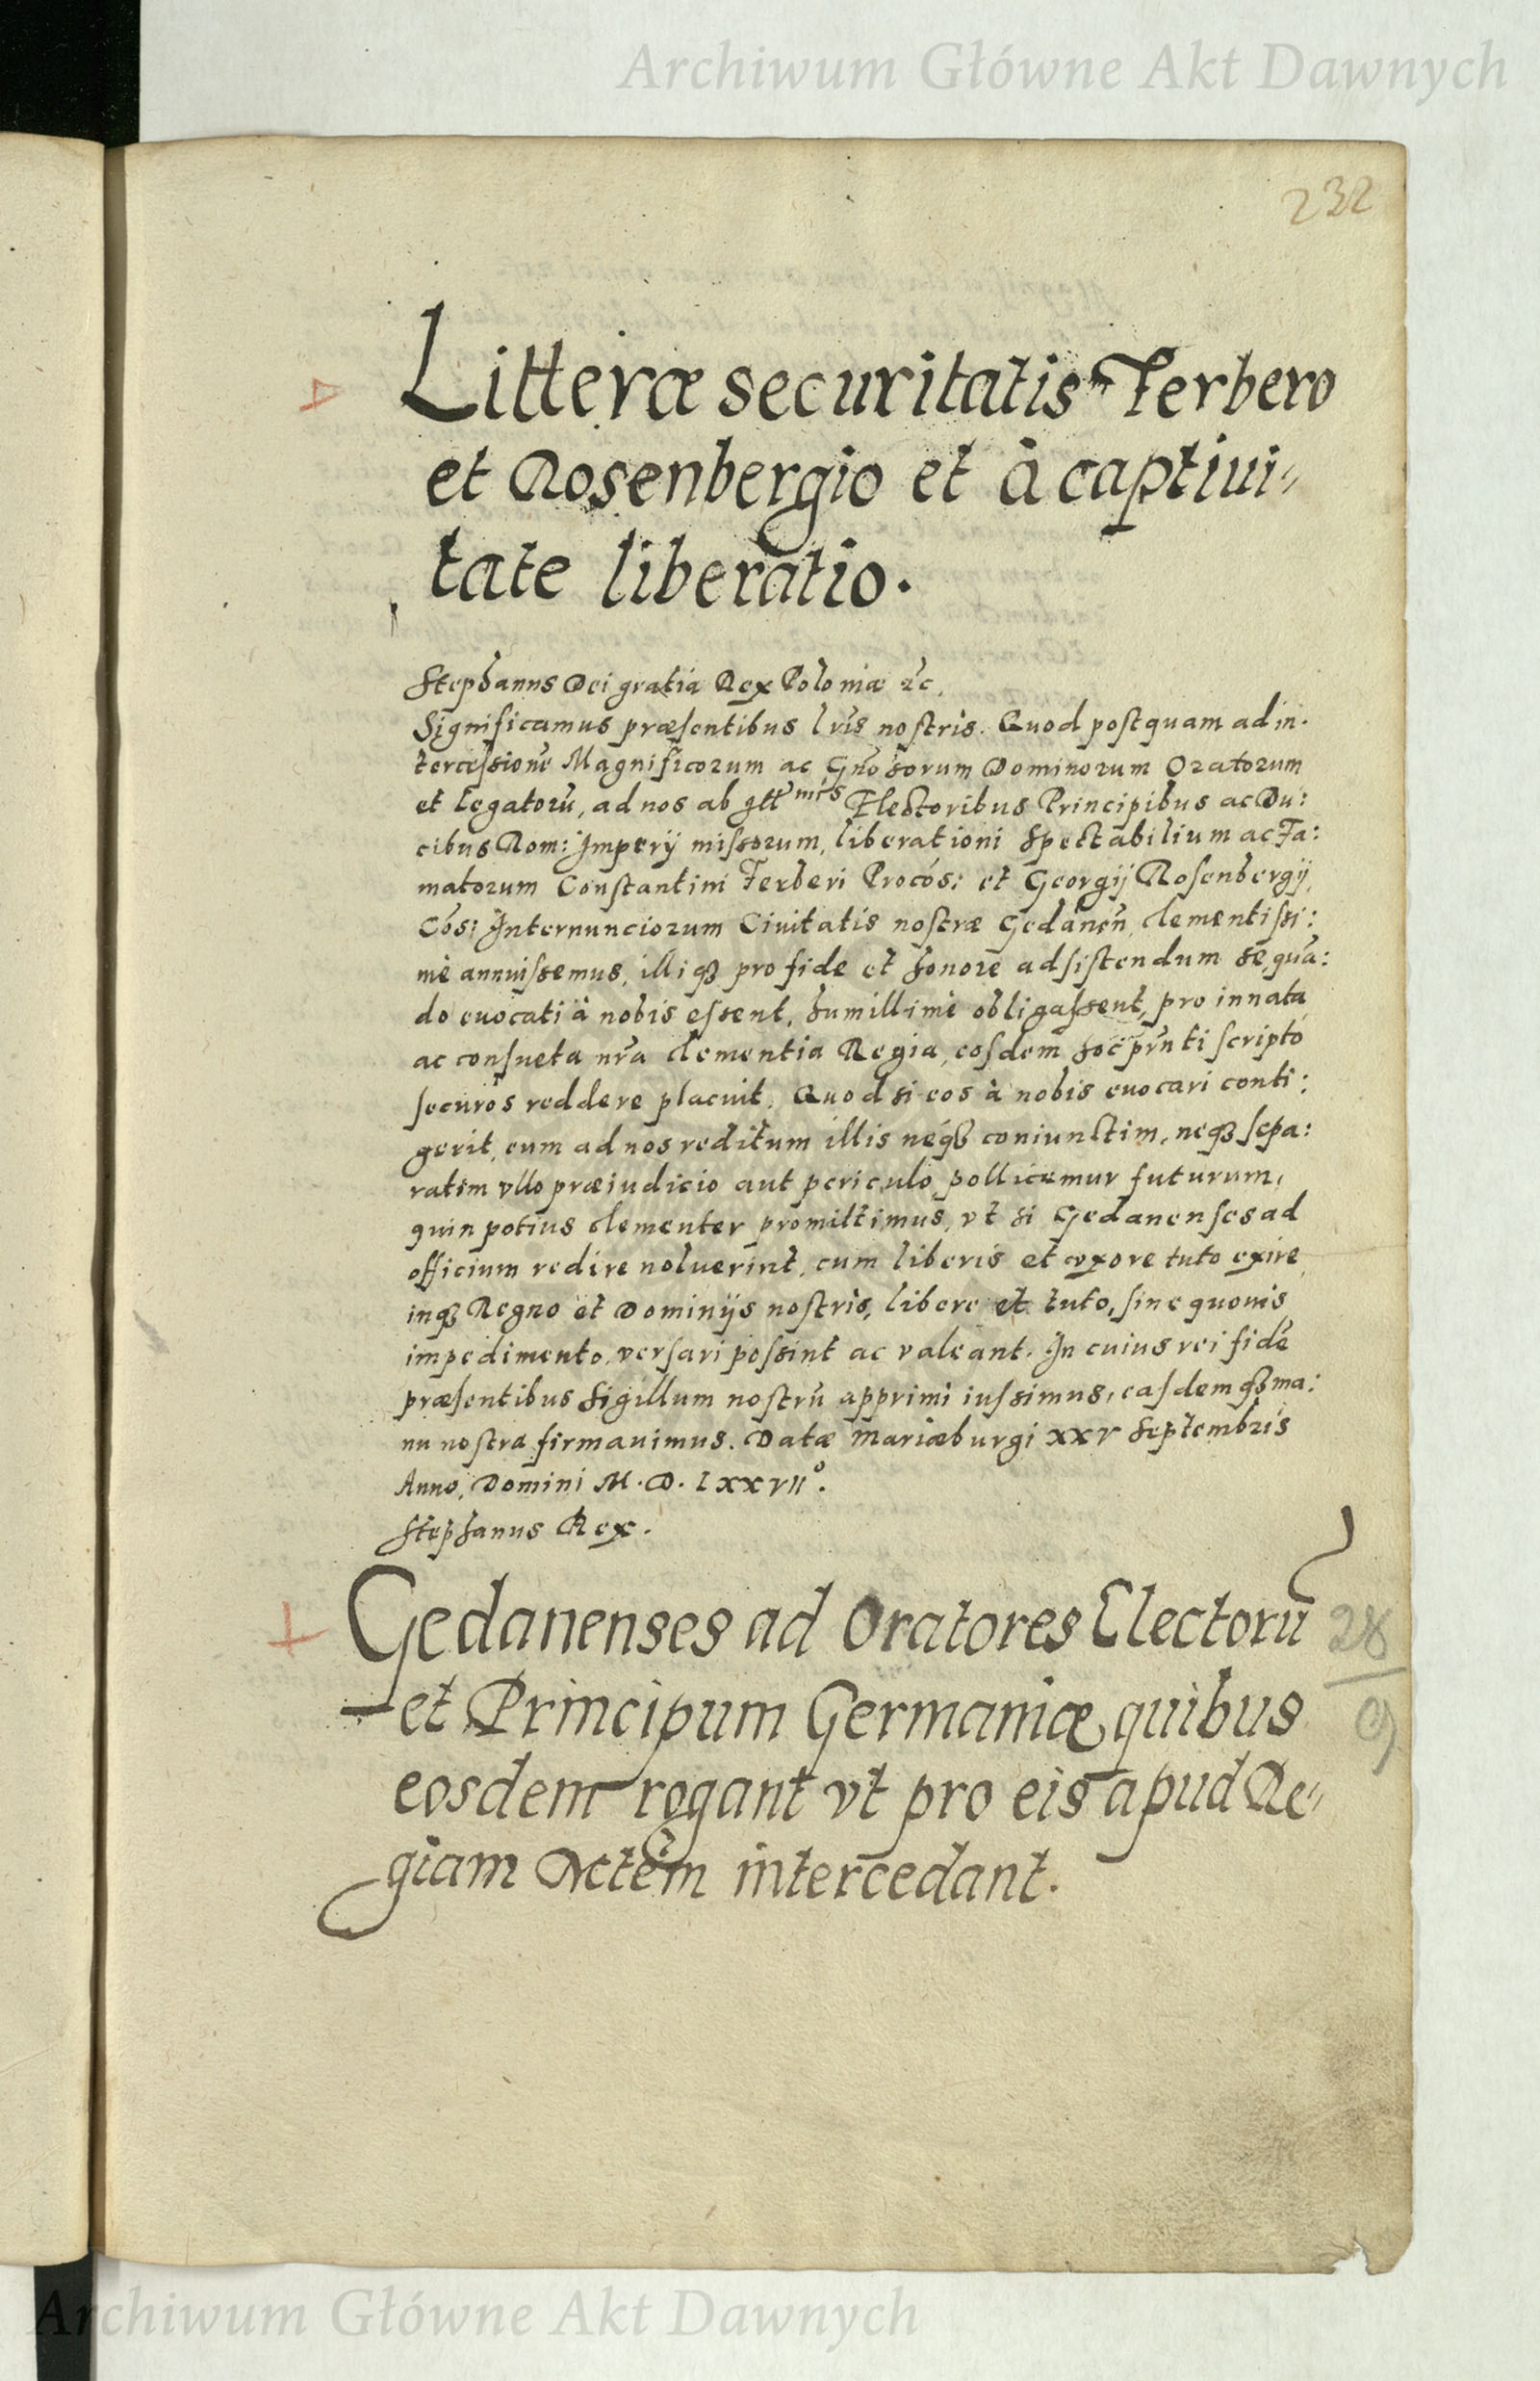 Archiwum Główne Akt Dawnych
232
Litteræ securitatis Ferbero
et Rosenbergio et à captiui-
tate liberatio.
Stephanus Dei gratia Rex Poloniæ &c.
Significamus præsentibus lris nostris. Quod postquam ad in-
tercessionē Magnificorum ac Gnosorum Dominorum Oratorum
et Legatorū, ad nos ab Illmis Electoribus Principibus ac Du:
cibus Rom: Imperij missorum, liberationi Spectabilium ac Fa:
matorum Constantini Ferberi Procos: et Georgij Rosenbergij
Cos: Internunciorum Ciuitatis nostræ Gedanen, clementissi:
mè annuissemus, illiq₃ pro fide et honore adsistendum se, quā:
do euocati à nobis essent, humillimè obligassent, pro innata
ac consueta nra clementia Regia, eosdem hoc prnti scripto
securos reddere placuit. Quod si eos à nobis euocari conti:
gerit, eum ad nos reditum illis neq₃ coniunctim, neq₃ sepa:
ratim vllo præiudicio aut periculo pollicemur futurum,
quin potius clementer promittimus, vt si Gedanenses ad
officium redire noluerint, cum liberis et vxore tuto exire,
inq₃ Regno et Dominijs nostris, libere et tuto, sine quouis
impedimento, versari possint ac valeant. In cuius rei fidē
præsentibus Sigillum nostrū apprimi iussimus, easdemq₃ ma:
nu nostra firmauimus. Datæ Mariæburgi xxv Septembris
Anno, Domini M. D. lxxvii°.
Stephanus Rex.
Gedanenses ad Oratores Electorū
et Principum Germaniæ quibus
eosdem rogant vt pro eis apud Re-
giam Mctem intercedant.
28
9
Archiwum Główne Akt Dawnych